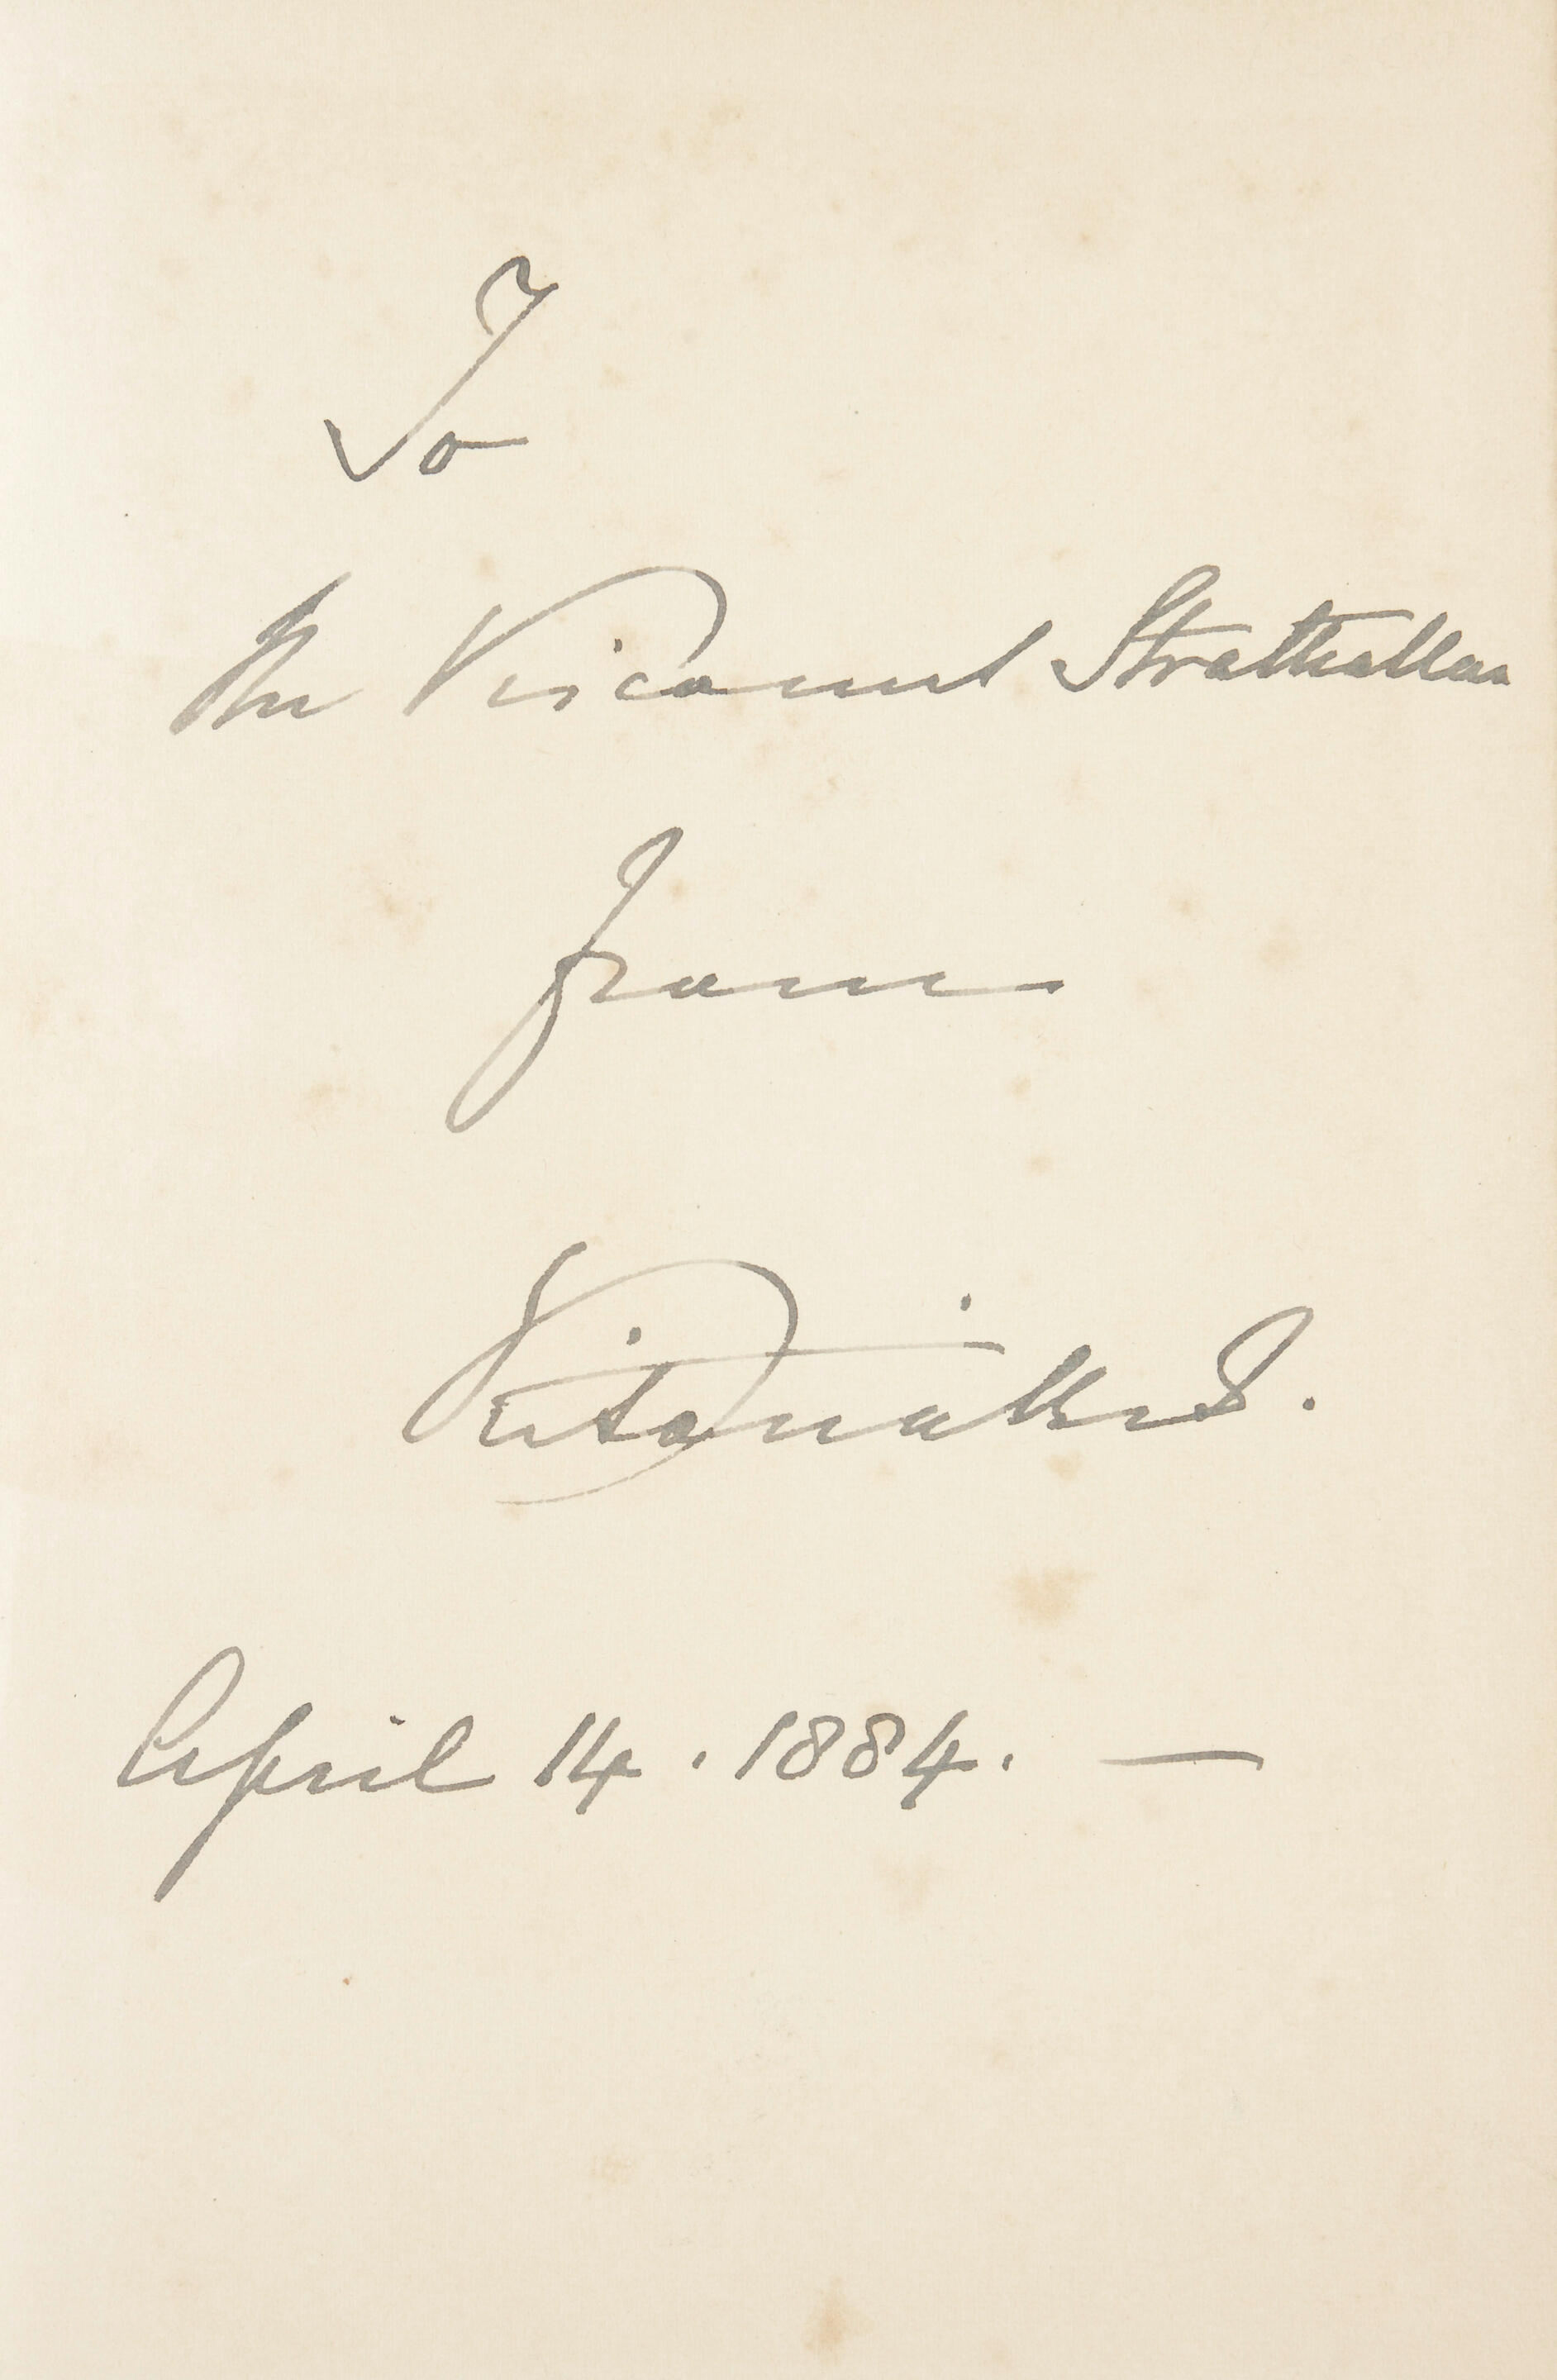 To
the Viscount Strathallan
from
Victoria R I.
April 14. 1884. —